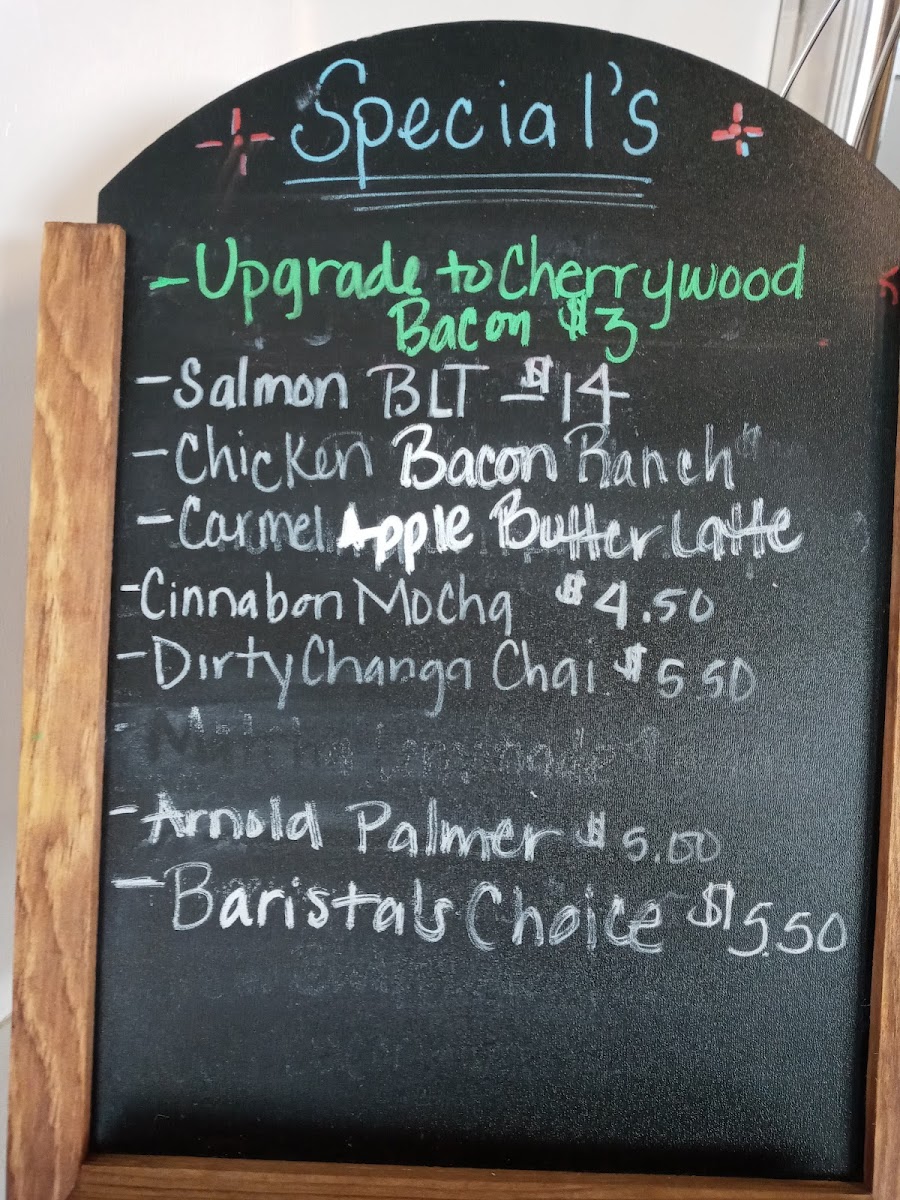 Special's
- Upgrade to Cherrywood
Bacon $3
- Salmon BLT $14
- Chicken Bacon Ranch "
- Carmel Apple Butter Latte
- Cinnabon Mocha $4.50
- Dirty Changa Chai $5.50
- Matcha Lemonade
- Arnold Palmer $5.00
- Barista's Choice $5.50